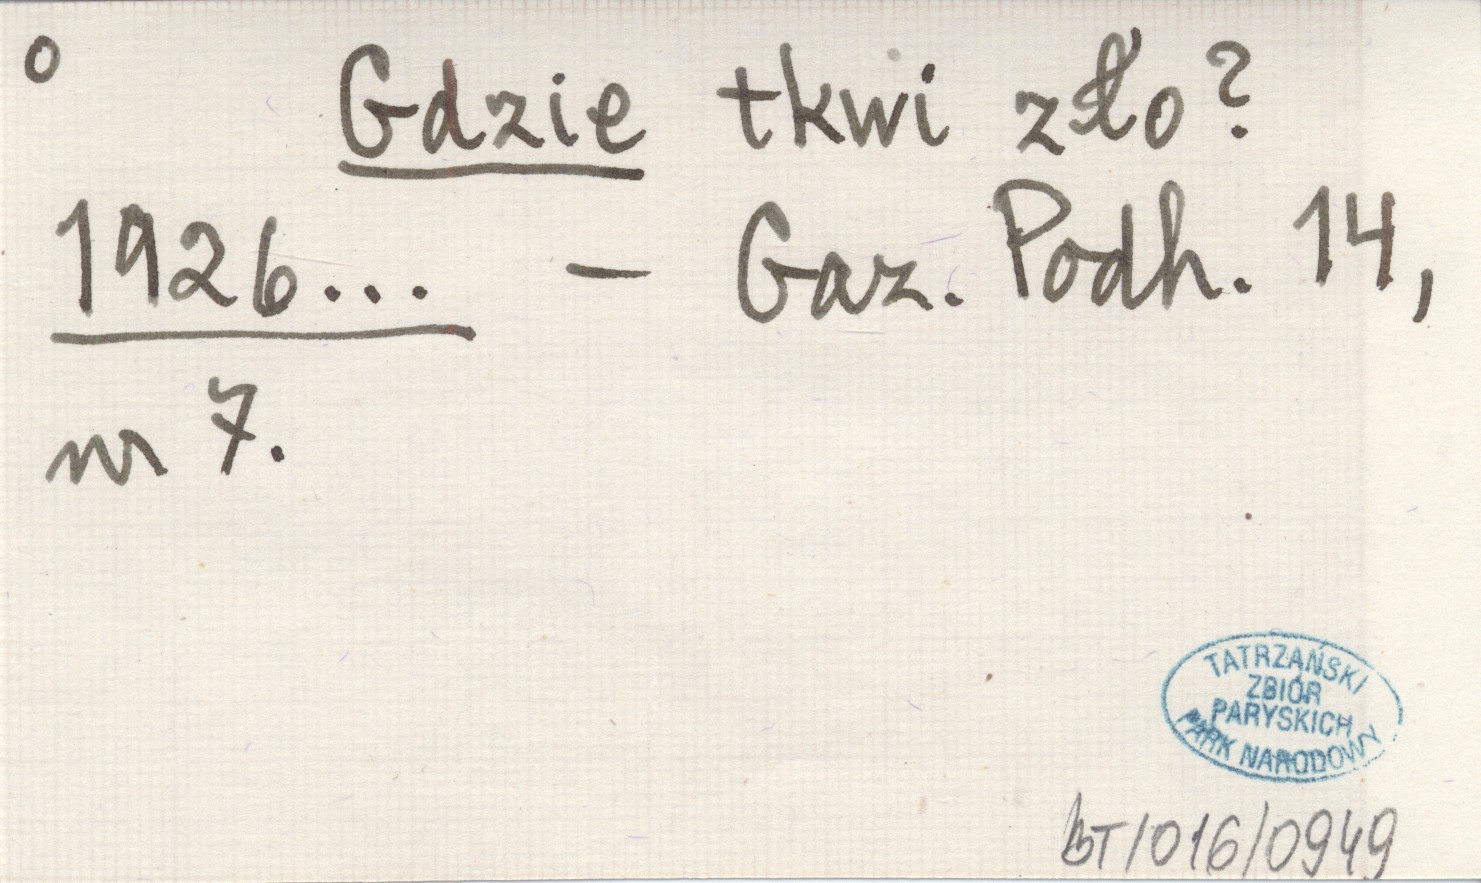 o Gdzie tkwi zło?
1926... – Gaz. Podh. 14,
nr 7.
TATRZAŃSKI
ZBIÓR
PARYSKICH
PARK NARODOWY
BT/016/0949